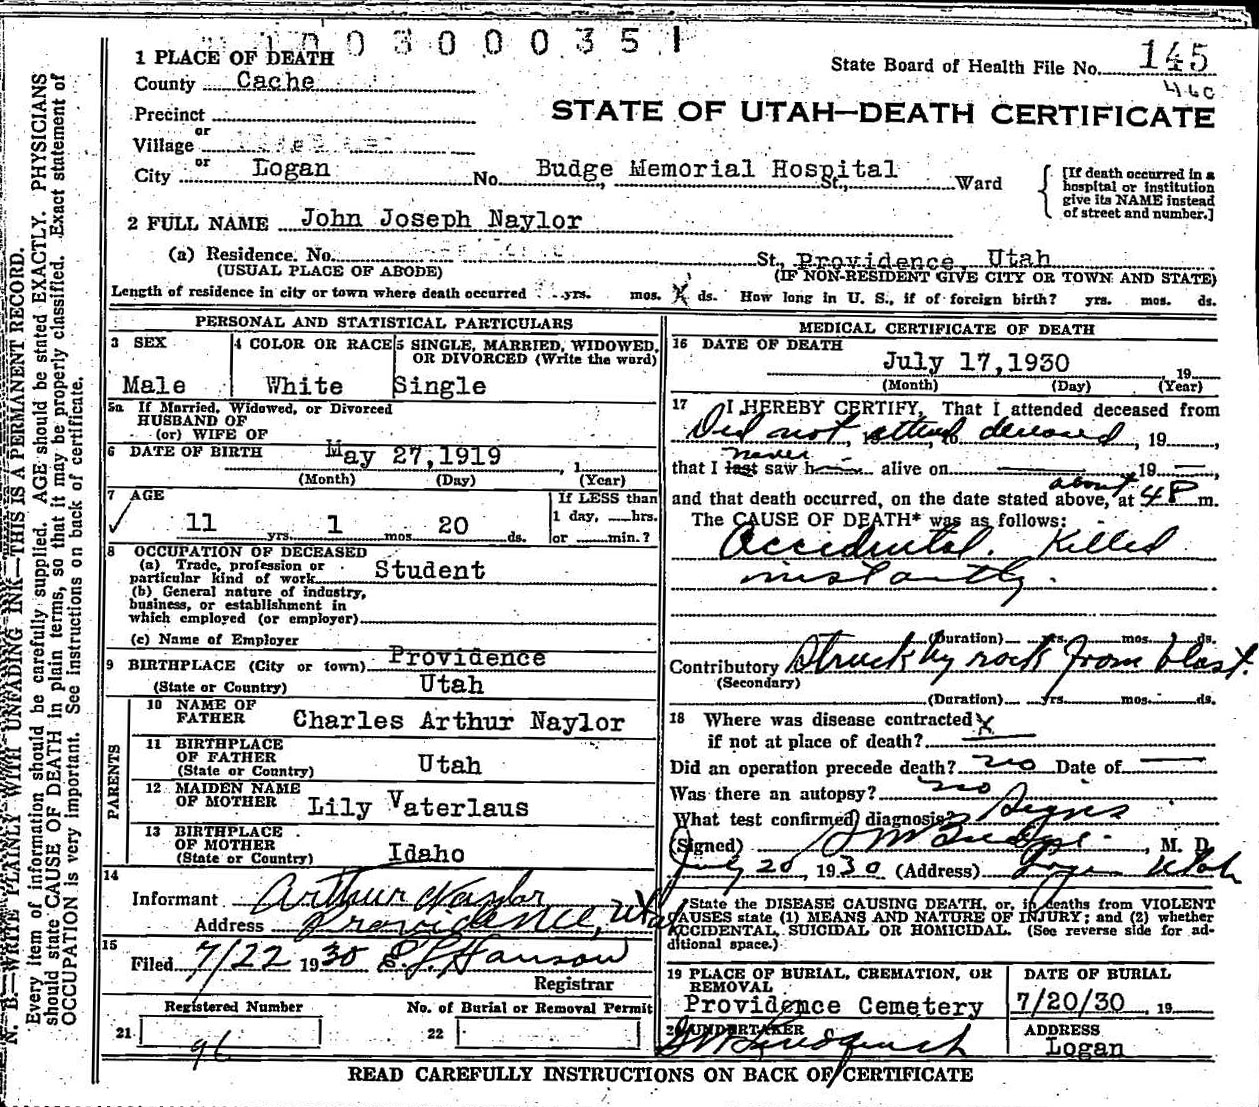 1 0 0 3 0 0 0 3 5 1
1 PLACE OF DEATH
State Board of Health File No. 145
County Cache
460
STATE OF UTAH—DEATH CERTIFICATE
Precinct
or
Village
or
City Logan No. Budge Memorial Hospital St., Ward
[If death occurred in a hospital or institution give its NAME instead of street and number.]
2 FULL NAME John Joseph Naylor
(a) Residence. No. St. Providence, Utah
(USUAL PLACE OF ABODE) (IF NON-RESIDENT GIVE CITY OR TOWN AND STATE)
Length of residence in city or town where death occurred yrs. mos. ds. How long in U. S., if of foreign birth? yrs. mos. ds.
PERSONAL AND STATISTICAL PARTICULARS
3 SEX Male
4 COLOR OR RACE White
5 SINGLE, MARRIED, WIDOWED, OR DIVORCED (Write the word) Single
5a If Married, Widowed, or Divorced
HUSBAND OF
(or) WIFE OF
6 DATE OF BIRTH May 27,1919 , 1
(Month) (Day) (Year)
7 AGE
If LESS than
1 day, hrs.
or min.?
11 yrs. 1 mos 20 ds.
8 OCCUPATION OF DECEASED
(a) Trade, profession or
particular kind of work Student
(b) General nature of industry,
business, or establishment in
which employed (or employer)
(c) Name of Employer
9 BIRTHPLACE (City or town) Providence
(State or Country) Utah
PARENTS
10 NAME OF
FATHER Charles Arthur Naylor
11 BIRTHPLACE
OF FATHER
(State or Country) Utah
12 MAIDEN NAME
OF MOTHER Lily Vaterlaus
13 BIRTHPLACE
OF MOTHER
(State or Country) Idaho
14
Informant Arthur Naylor
Address Providence, Utah
15
Filed 7/22 1930 E. L. Hanson
Registrar
Registered Number No. of Burial or Removal Permit
21 96 22
MEDICAL CERTIFICATE OF DEATH
16 DATE OF DEATH
July 17,1930 19
(Month) (Day) (Year)
17 I HEREBY CERTIFY, That I attended deceased from
Did not attend deceased, 19 ,
never
that I last saw h alive on , 19
about
and that death occurred, on the date stated above, at 4 P m.
The CAUSE OF DEATH* was as follows:
Accidental. Killed
instantly.
(Duration) yrs. mos. ds.
Contributory Struck by rock from blast.
(Secondary)
(Duration) yrs. mos. ds.
18 Where was disease contracted
if not at place of death?
Did an operation precede death? no Date of
Was there an autopsy? no
What test confirmed diagnosis? Signs
(Signed) Budge, M. D.
July 20, 1930 (Address) Logan Utah
*State the DISEASE CAUSING DEATH, or, in deaths from VIOLENT
CAUSES state (1) MEANS AND NATURE OF INJURY; and (2) whether
ACCIDENTAL, SUICIDAL OR HOMICIDAL. (See reverse side for ad-
ditional space.)
19 PLACE OF BURIAL, CREMATION, OR
REMOVAL
Providence Cemetery
DATE OF BURIAL
7/20/30 19
20 UNDERTAKER
ADDRESS
Logan
READ CAREFULLY INSTRUCTIONS ON BACK OF CERTIFICATE
N. B.—WRITE PLAINLY WITH UNFADING INK—THIS IS A PERMANENT RECORD.
Every item of information should be carefully supplied. AGE should be stated EXACTLY. PHYSICIANS
should state CAUSE OF DEATH in plain terms, so that it may be properly classified. Exact statement of
OCCUPATION is very important. See instructions on back of certificate.